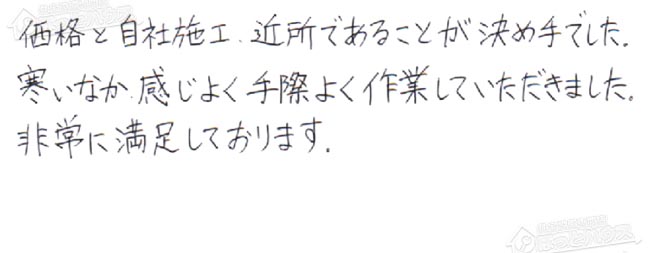 価格と自社施工、近所であることが決め手でした。
寒いなか、感じよく手際よく作業していただきました。
非常に満足しております。